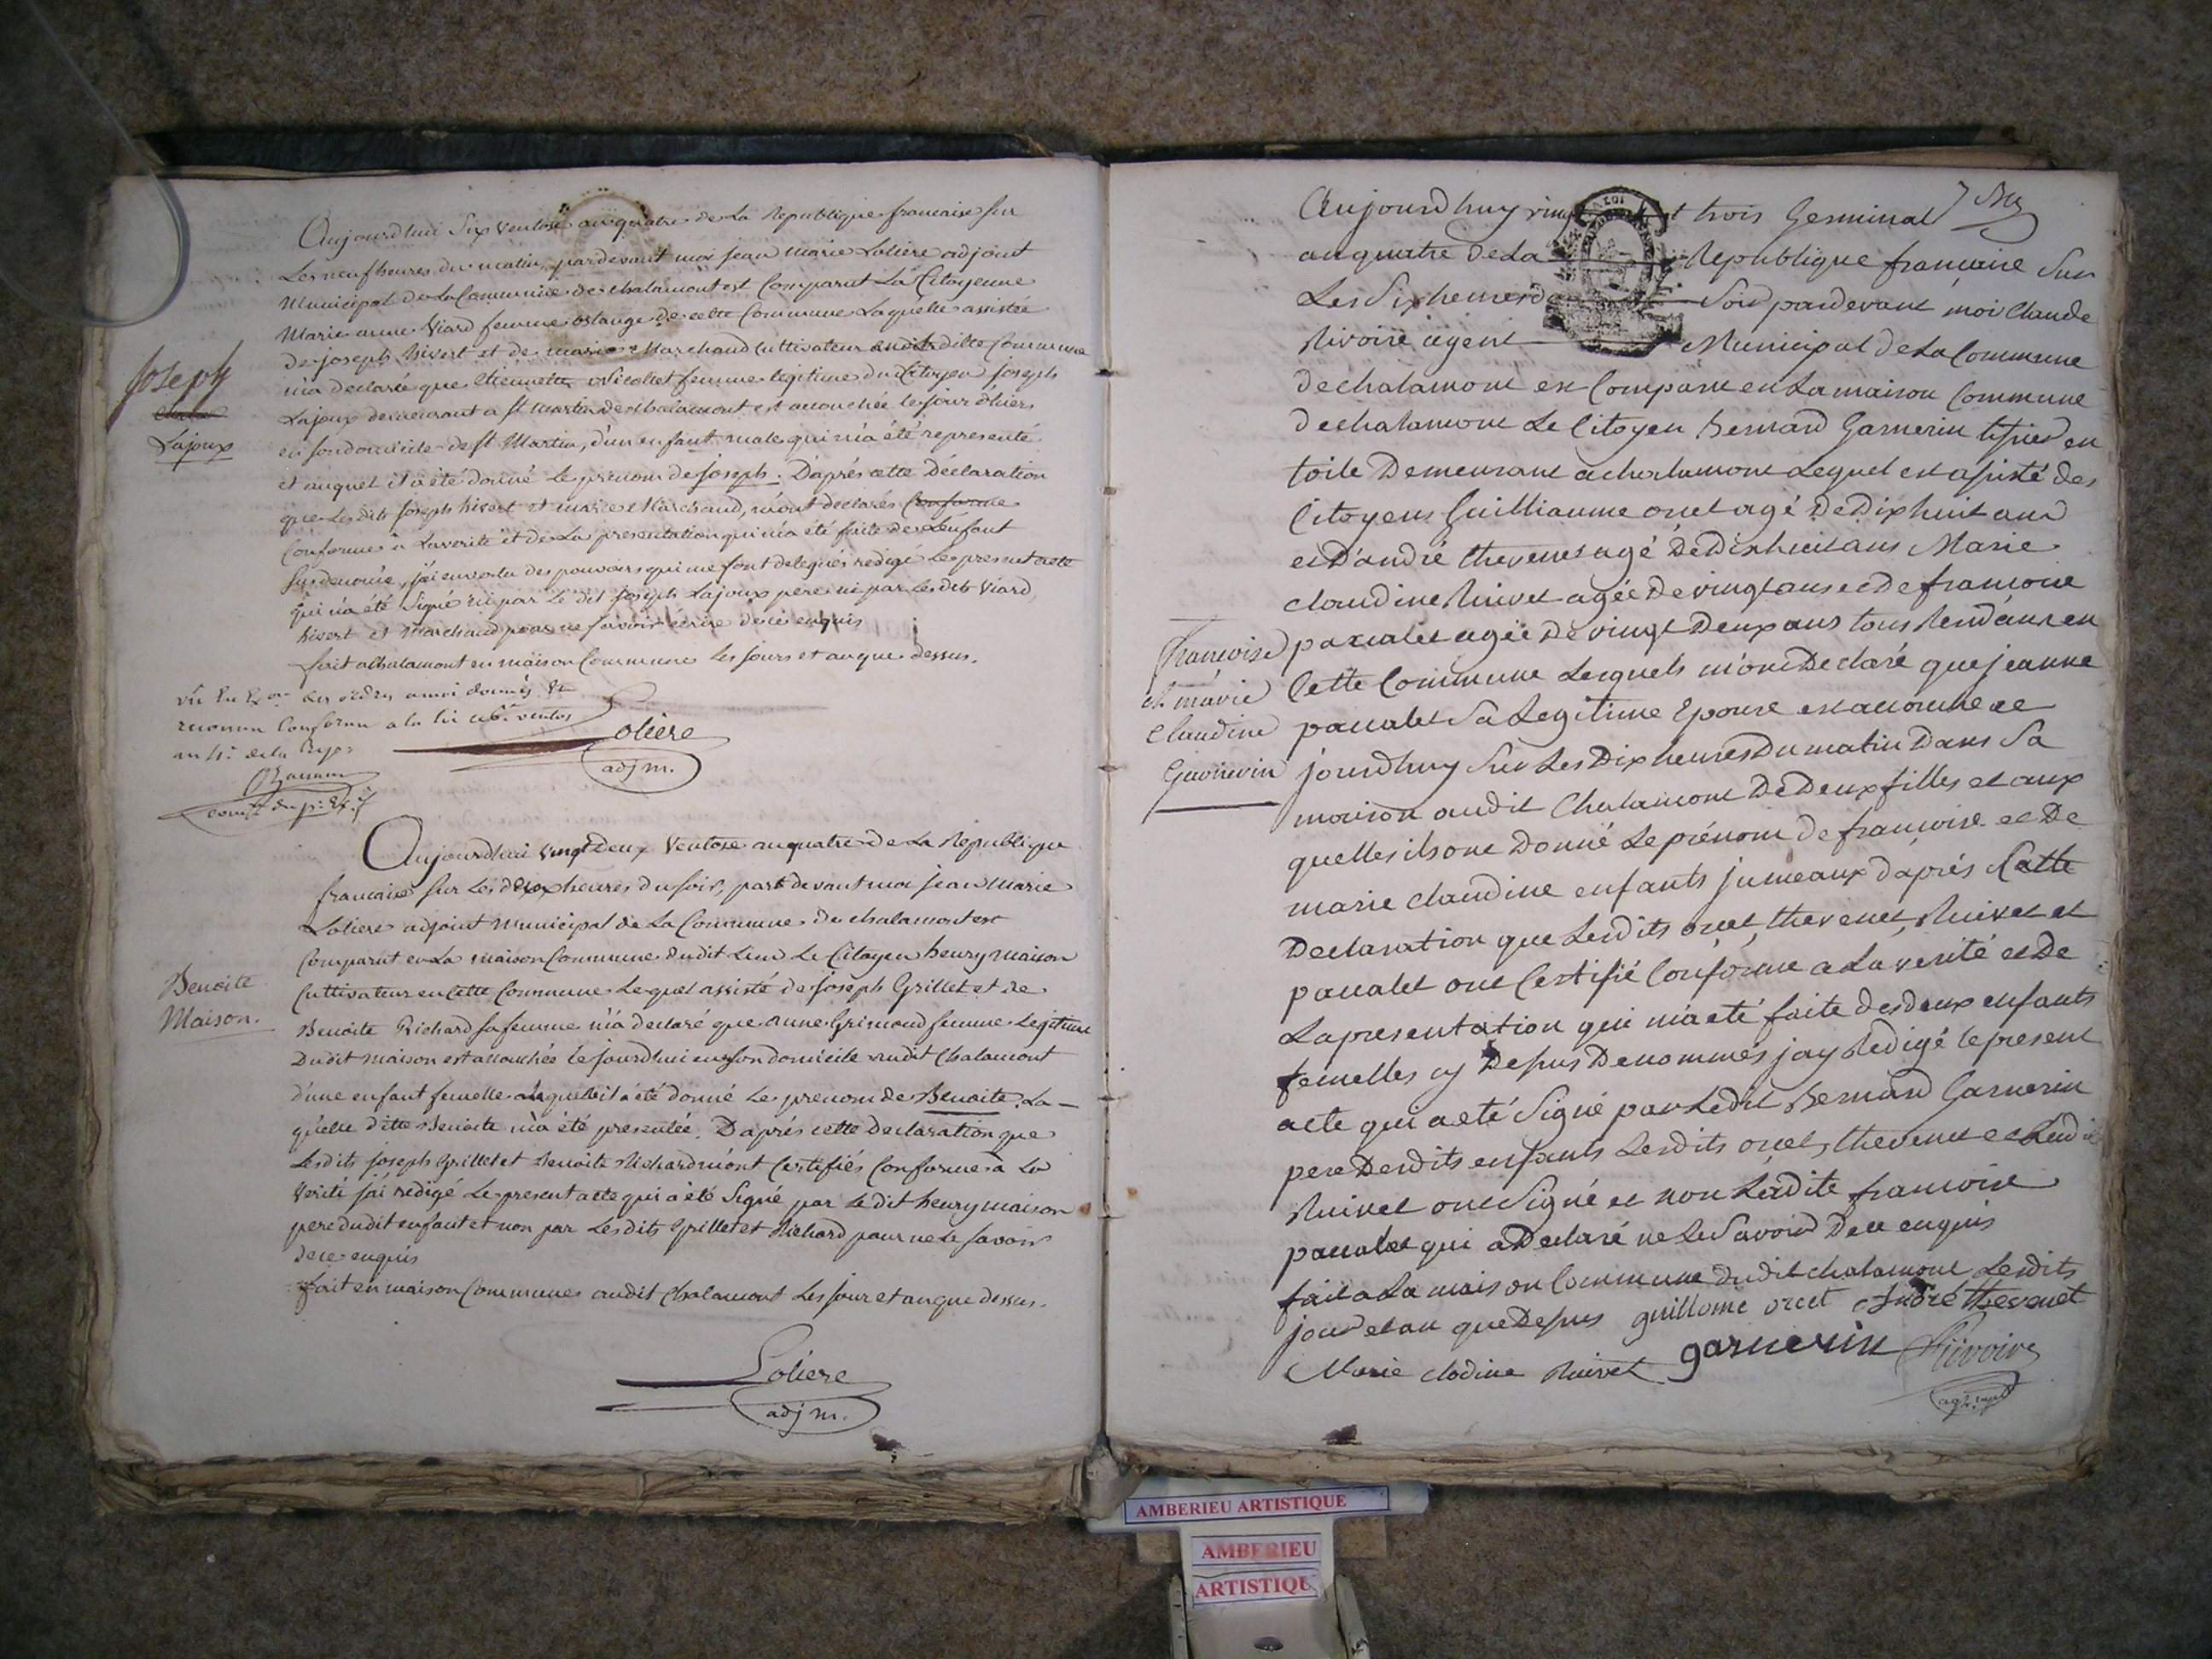 Aujourdhui Six Ventose an quatre de La Republique francaise sur
Les neuf heures du matin, pardevant moi jean marie Loliere adjoint
Municipal de La Commune de chalamont est Comparut La Citoyenne
Marie anne Viard femme de cette Commune Laquelle assistée
de joseph hivert et de marie Marchand Cultivateur dditte Commune
m'a declaré que Etiennette Nicollet femme legitime du Citoyen joseph
Lajoux demeurant a st martin de chalamont est accouchée le jour d'hier
Joseph
Lajoux
en son domicile de st Martin, d'un enfant male qui m'a été representé
et auquel il a été donné Le prenom de joseph. D'aprés cette Déclaration
que Les dits joseph hivert et marie Marchand, m'ont declarés Conforme
Conforme a La verité et de La presentation qui m'a été faite de L'enfant
Susdenomé, j'ai en vertu des pouvoirs qui me sont delegués redigé Le present acte
qui n'a été Signé ni par Le dit joseph Lajoux pere ni par Les dits Viard
hivert et Marchand pour ne savoir écrire de ce enquis
fait a Chalamont en maison Commune Les jours et an que dessus.
vû en les ordres a moi donnés
reconnu Conforme a la loi ventos
an 4e. de la Rep.
Loliere
adj m.
Aujourdhui vingt Deux Ventose an quatre de La Republique
francaise sur Les deux heures du soir, pardevant moi jean marie
Loliere adjoint municipal de La Commune de chalamont est
Comparut en La maison Commune dudit Lieu Le Citoyen henry maison
Benoite
Maison.
Cultivateur en Cette Commune Lequel assisté de joseph Grillet et de
Benoite Richard sa femme m'a declaré que anne Grimoud femme Legitime
Dudit maison est accouchée Ce jourdhui en son domicile audit Chalamont
d'une enfant femelle a laquelle il a été donné Le prenom de Benoite. La
quelle ditte Benoite m'a été presentée. D'aprés cette Declaration que
Lesdits joseph Grillet et Benoite Richard m'ont Certifiés Conforme a La
Verité j'ai redigé Le present acte qui a été Signé par Le dit henry maison
pere dudit enfant et non par Les dits Grillet et Richard pour ne Le savoir
de ce enquis
fait en maison Commune audit Chalamont Les jour et an que dessus.
Loliere
adj m.
Aujourdhuy vingt trois Germinal
an quatre de La Republique francaise Sur
Les Six heures du Soir pardevant moi Claude
Rivoire agent Municipal de La Commune
de chalamont est Comparu en La maison Commune
de chalamont Le Citoyen Bernard Garnerin tisseur en
toile Demeurant a chalamont Lequel est assisté des
Citoyens Guilliaume orcet agé De Dix huit ans
et D'andré thevenet agé De Dix huit ans Marie
claudine Ruivet agée De vingt ans et De francoise
Francoise
et marie
Claudine
Garnerin
pacalet agée De vingt Deux ans tous Residans en
Cette Commune Lesquels m'ont Declaré que jeanne
pacalet Sa Legitime Epouse est accouchée ce
jourdhuy Sur Les Dix heures Du matin Dans Sa
maison audit Chalamont De Deux filles et aux
quelles ils ont Donné Le prénom de francoise et De
marie claudine enfants jumeaux d'aprés Cette
Declaration que Lesdits orcet, thevenet, Ruivet et
pacalet ont Certifié Conforme a La verité et De
La presentation qui m'a été faite des deux enfants
femelles cy Dessus Denommés jay Redigé le present
acte qui a eté Signé par Ledit Bernard Garnerin
pere Desdits enfants Lesdits orcet, thevenet et Ladite
Ruivet ont Signé et non Ladite francoise
pacalet qui a Declaré ne Le Savoir De ce enquis
fait a La maison Commune dudit chalamont Lesdits
jour et an que Dessus guillome orcet André thevenet
Marie clodine Ruivet garnerin Rivoire
agt. mpal
AMBERIEU ARTISTIQUE
AMBERIEU
ARTISTIQUE